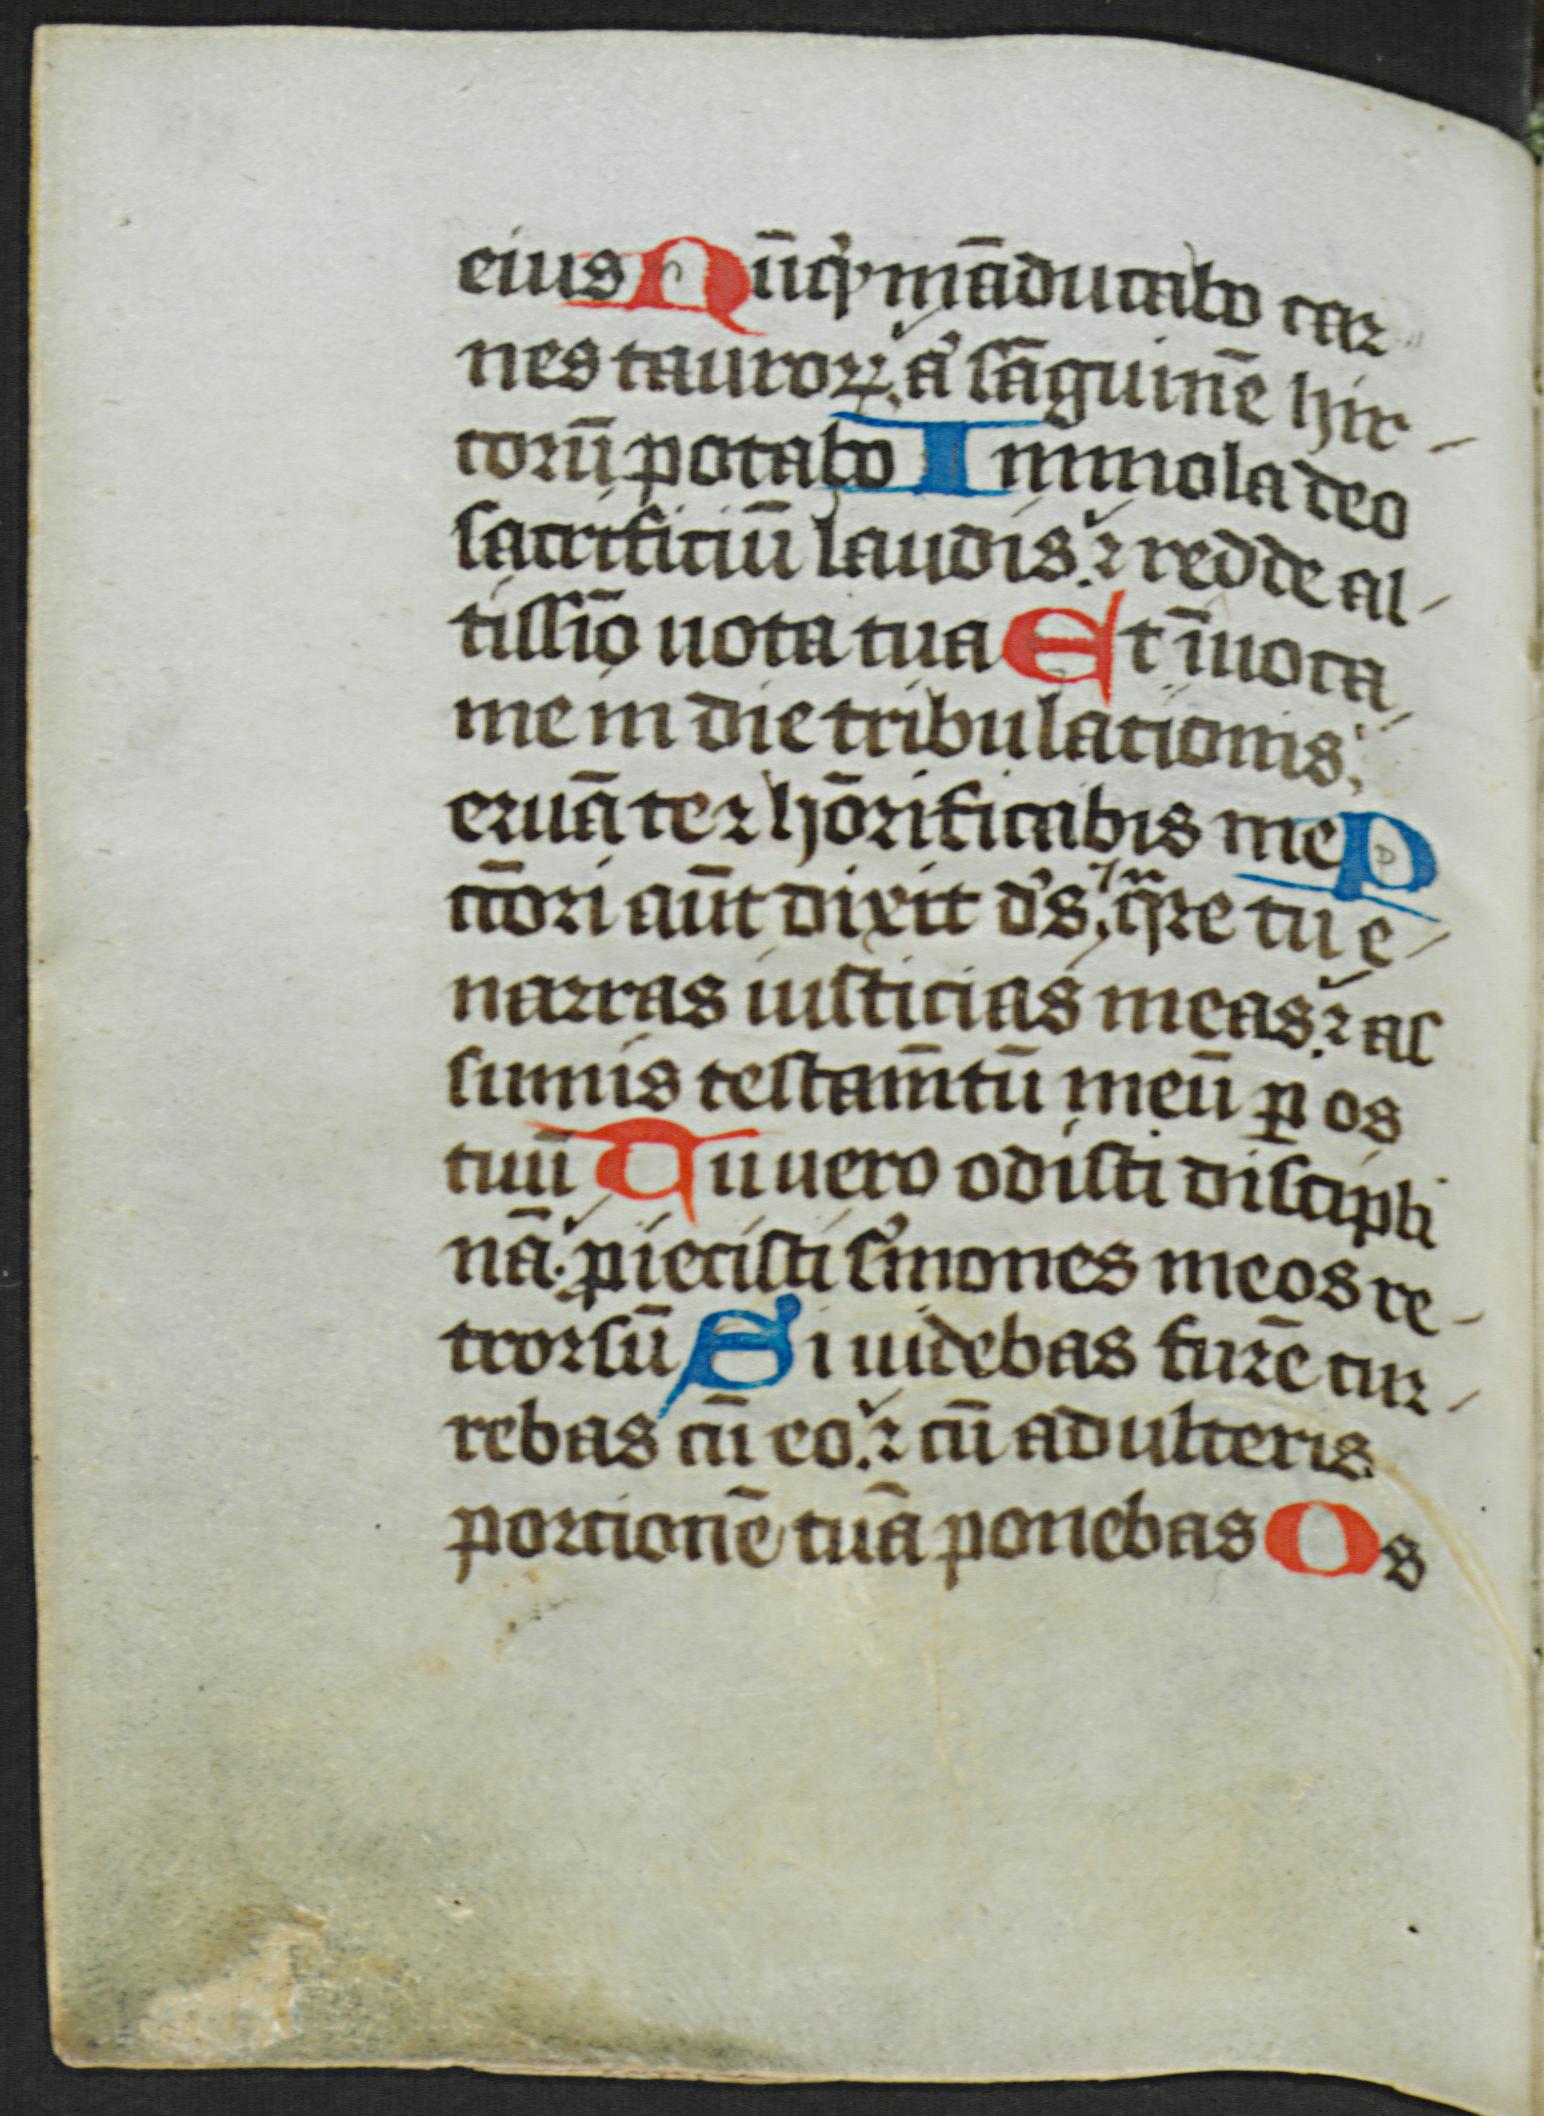 eius Nūqͥd māducabo car
nes tauroꝝ. aͧ sāguinē hir-
corū potabo Immola deo
sacrificiū laudis. ⁊ redde al-
tissīo uota tua Et īuoca
me in die tribulationis.
eruā te ⁊ hōrificabis me P
ctōri aūt dixit dꝰs. qͣre tu e-
narras iusticias meas. ⁊ as
sumis testam̄tū meū ꝑ os
tuū Tu uero odisti discipli
nā. ꝓiecisti sͬmones meos re-
trorsū Si uidebas furē cur-
rebas cū eo. ⁊ cū adulteris
portionē tuā ponebas Os